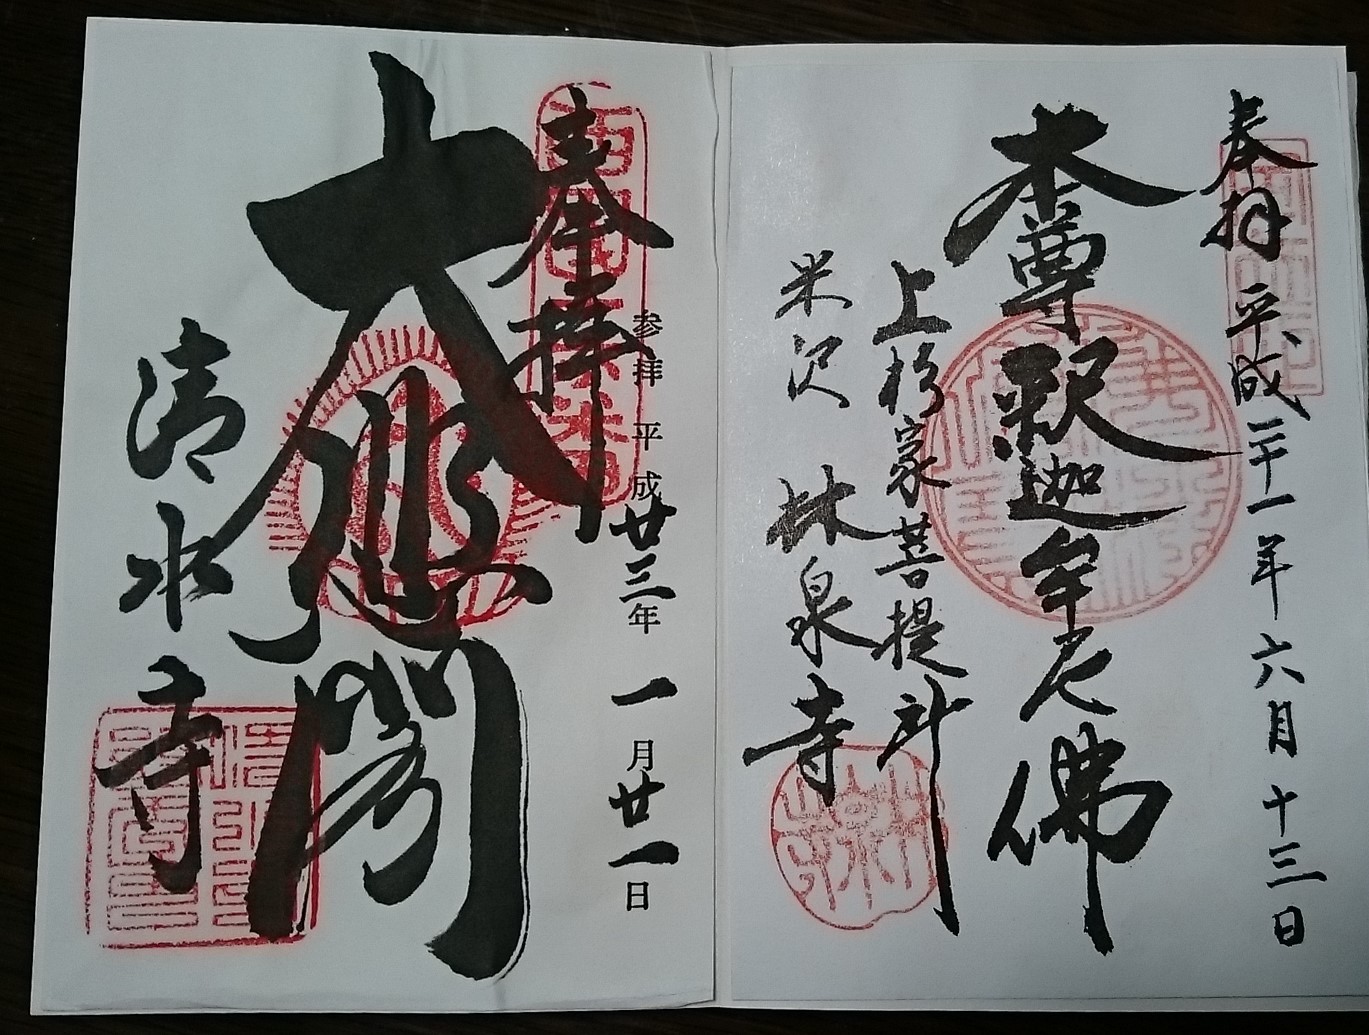 奉拝 平成二十一年六月十三日
本尊釈迦牟尼佛
上杉家菩提所
米沢 林泉寺
奉拝
参拝 平成廿三年 一月廿一日
大悲閣
清水寺